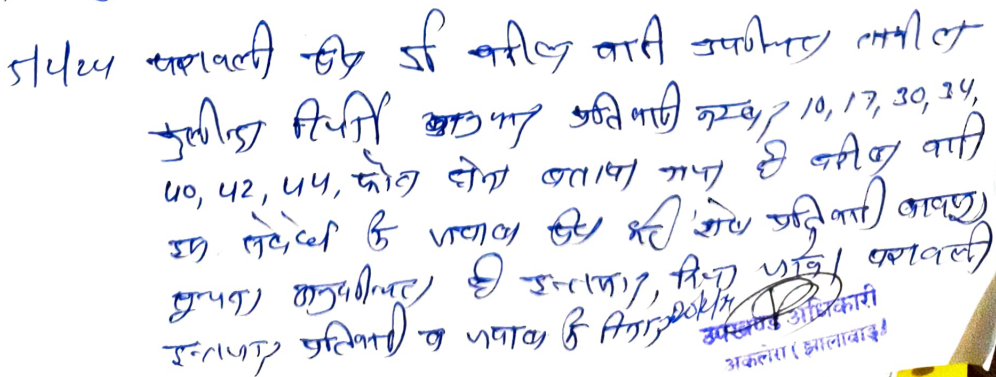 5/4/24 पत्रावली पेश हुई वकील वादी उपस्थित तामील
कुलीन्दा रिपोर्ट अनुसार प्रतिवादी नम्बर 10, 17, 30, 34,
40, 42, 44, फोत होना बताया गया है वकील वादी
इस संदर्भ में जवाब पेश करें शेष प्रतिवादी बावजूद
सूचना अनुपस्थित है इन्तजार किया जावे। पत्रावली
इन्तजार प्रतिवादी व जवाब में दिनांक
उपखण्ड अधिकारी
अकलेरा (झालावाड़)